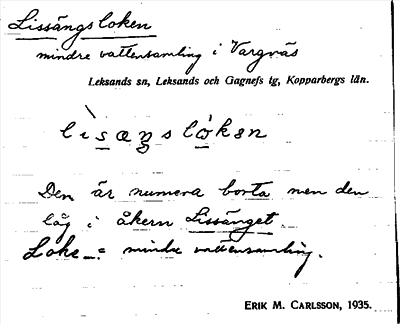 Lissängsloken
mindre vattensamling i Vargnäs
Leksands sn, Leksands och Gagnefs tg, Kopparbergs län.
lìsæŋslókən
Den är numera borta men den
låg i åkern Lissänget.
Loke = mindre vattensamling.
ERIK M. CARLSSON, 1935.